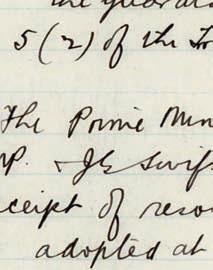 the
5 (2) of the Tr
The Prime Min
MP. & J G Swif
ceipt of reso
adopted at